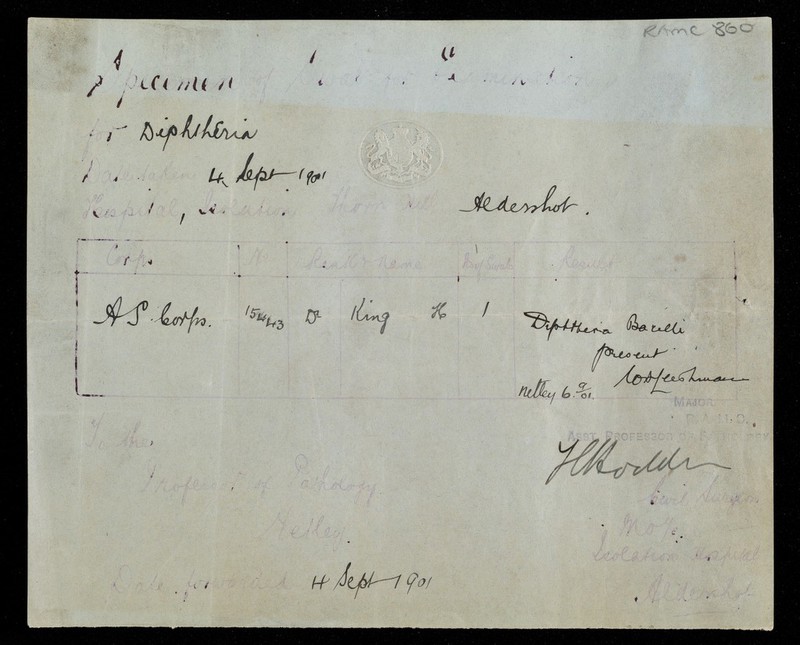 RAMC 860
Specimen of Swab for Examination
for Diphtheria
Date taken 4 Sept 1901
Hospital, Isolation Thorn Hill Aldershot.
Corps No Rank & Name Result
A S Corps. 15443 Dr King H 1 Diphtheria Bacilli
present
WBLeishman
Netley 6.9/01.
MAJOR
R.A.M.C.
ASST. PROFESSOR OF PATHOLOGY.
To the
Professor of Pathology
Netley
Civil Surgeon
M.O. i/c
Isolation Hospital
Aldershot
Date forwarded 4 Sept 1901